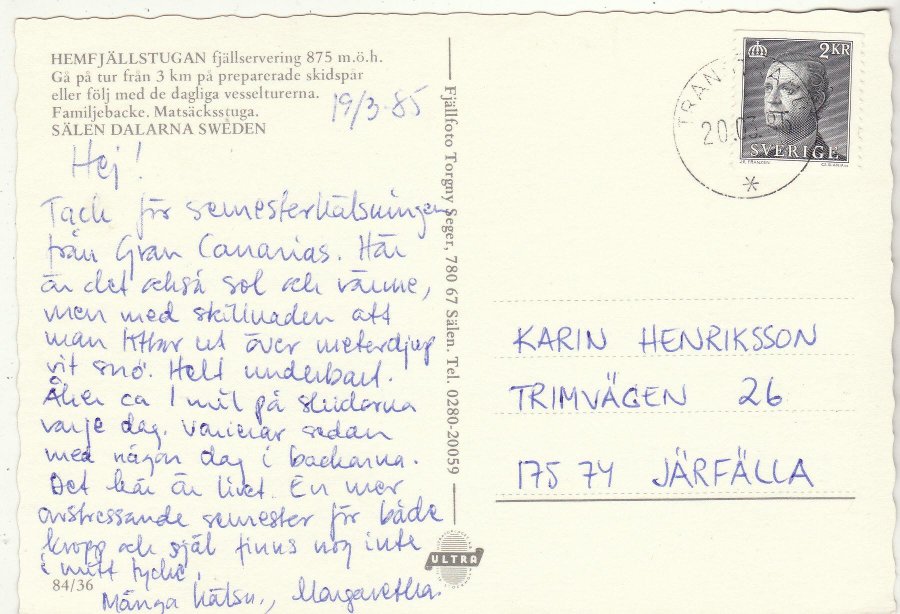 HEMFJÄLLSTUGAN fjällservering 875 m.ö.h.
Gå på tur från 3 km på preparerade skidspår
eller följ med de dagliga vesselturerna.
Familjebacke. Matsäcksstuga.
SÄLEN DALARNA SWEDEN
19/3-85
Hej!
Tack för semesterhälsningen
från Gran Canarias. Här
är det också sol och värme,
men med skillnaden att
man tittar ut över meterdjup
vit snö. Helt underbart.
Åker ca 1 mil på skidorna
varje dag. Varierar sedan
med någon dag i backarna.
Det här är livet. En mer
avstressande semester för både
kropp och själ finns nog inte
i mitt tycke.
Många hälsn., Margaretha.
84/36
Fjällfoto Torgny Seger, 780 67 Sälen. Tel. 0280-20059
ULTRA
2KR
SVERIGE
TRAN
20.03.85
KARIN HENRIKSSON
TRIMVÄGEN 26
175 74 JÄRFÄLLA